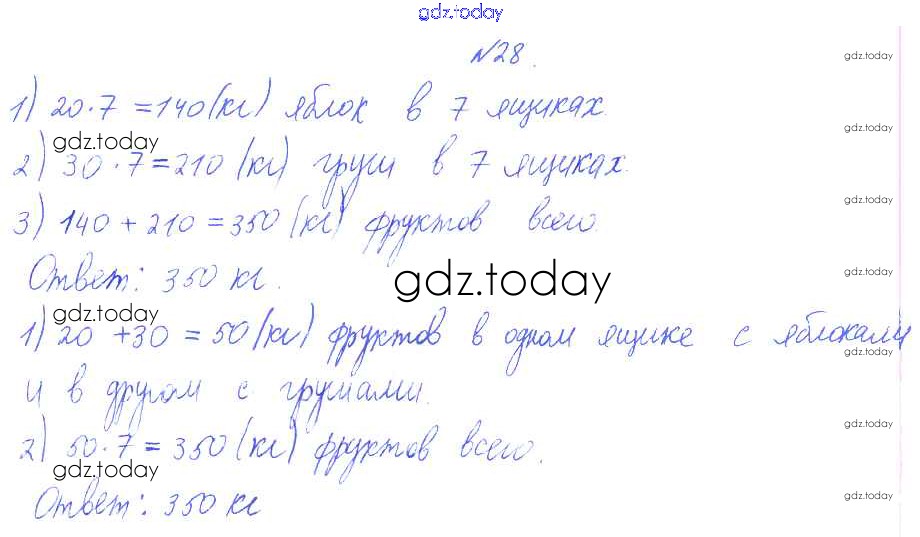 gdz.today
№28.
gdz.today
1) 20·7 =140(кг) яблок в 7 ящиках.
gdz.today
gdz.today
2) 30·7=210 (кг) груш в 7 ящиках.
gdz.today
3) 140 + 210 = 350 (кг) фруктов всего.
gdz.today
Ответ: 350 кг.
gdz.today
gdz.today
1) 20 +30 = 50 (кг) фруктов в одном ящике с яблоками
gdz.today
и в другом с грушами.
gdz.today
2) 50·7 = 350 (кг) фруктов всего.
gdz.today
Ответ: 350 кг
gdz.today